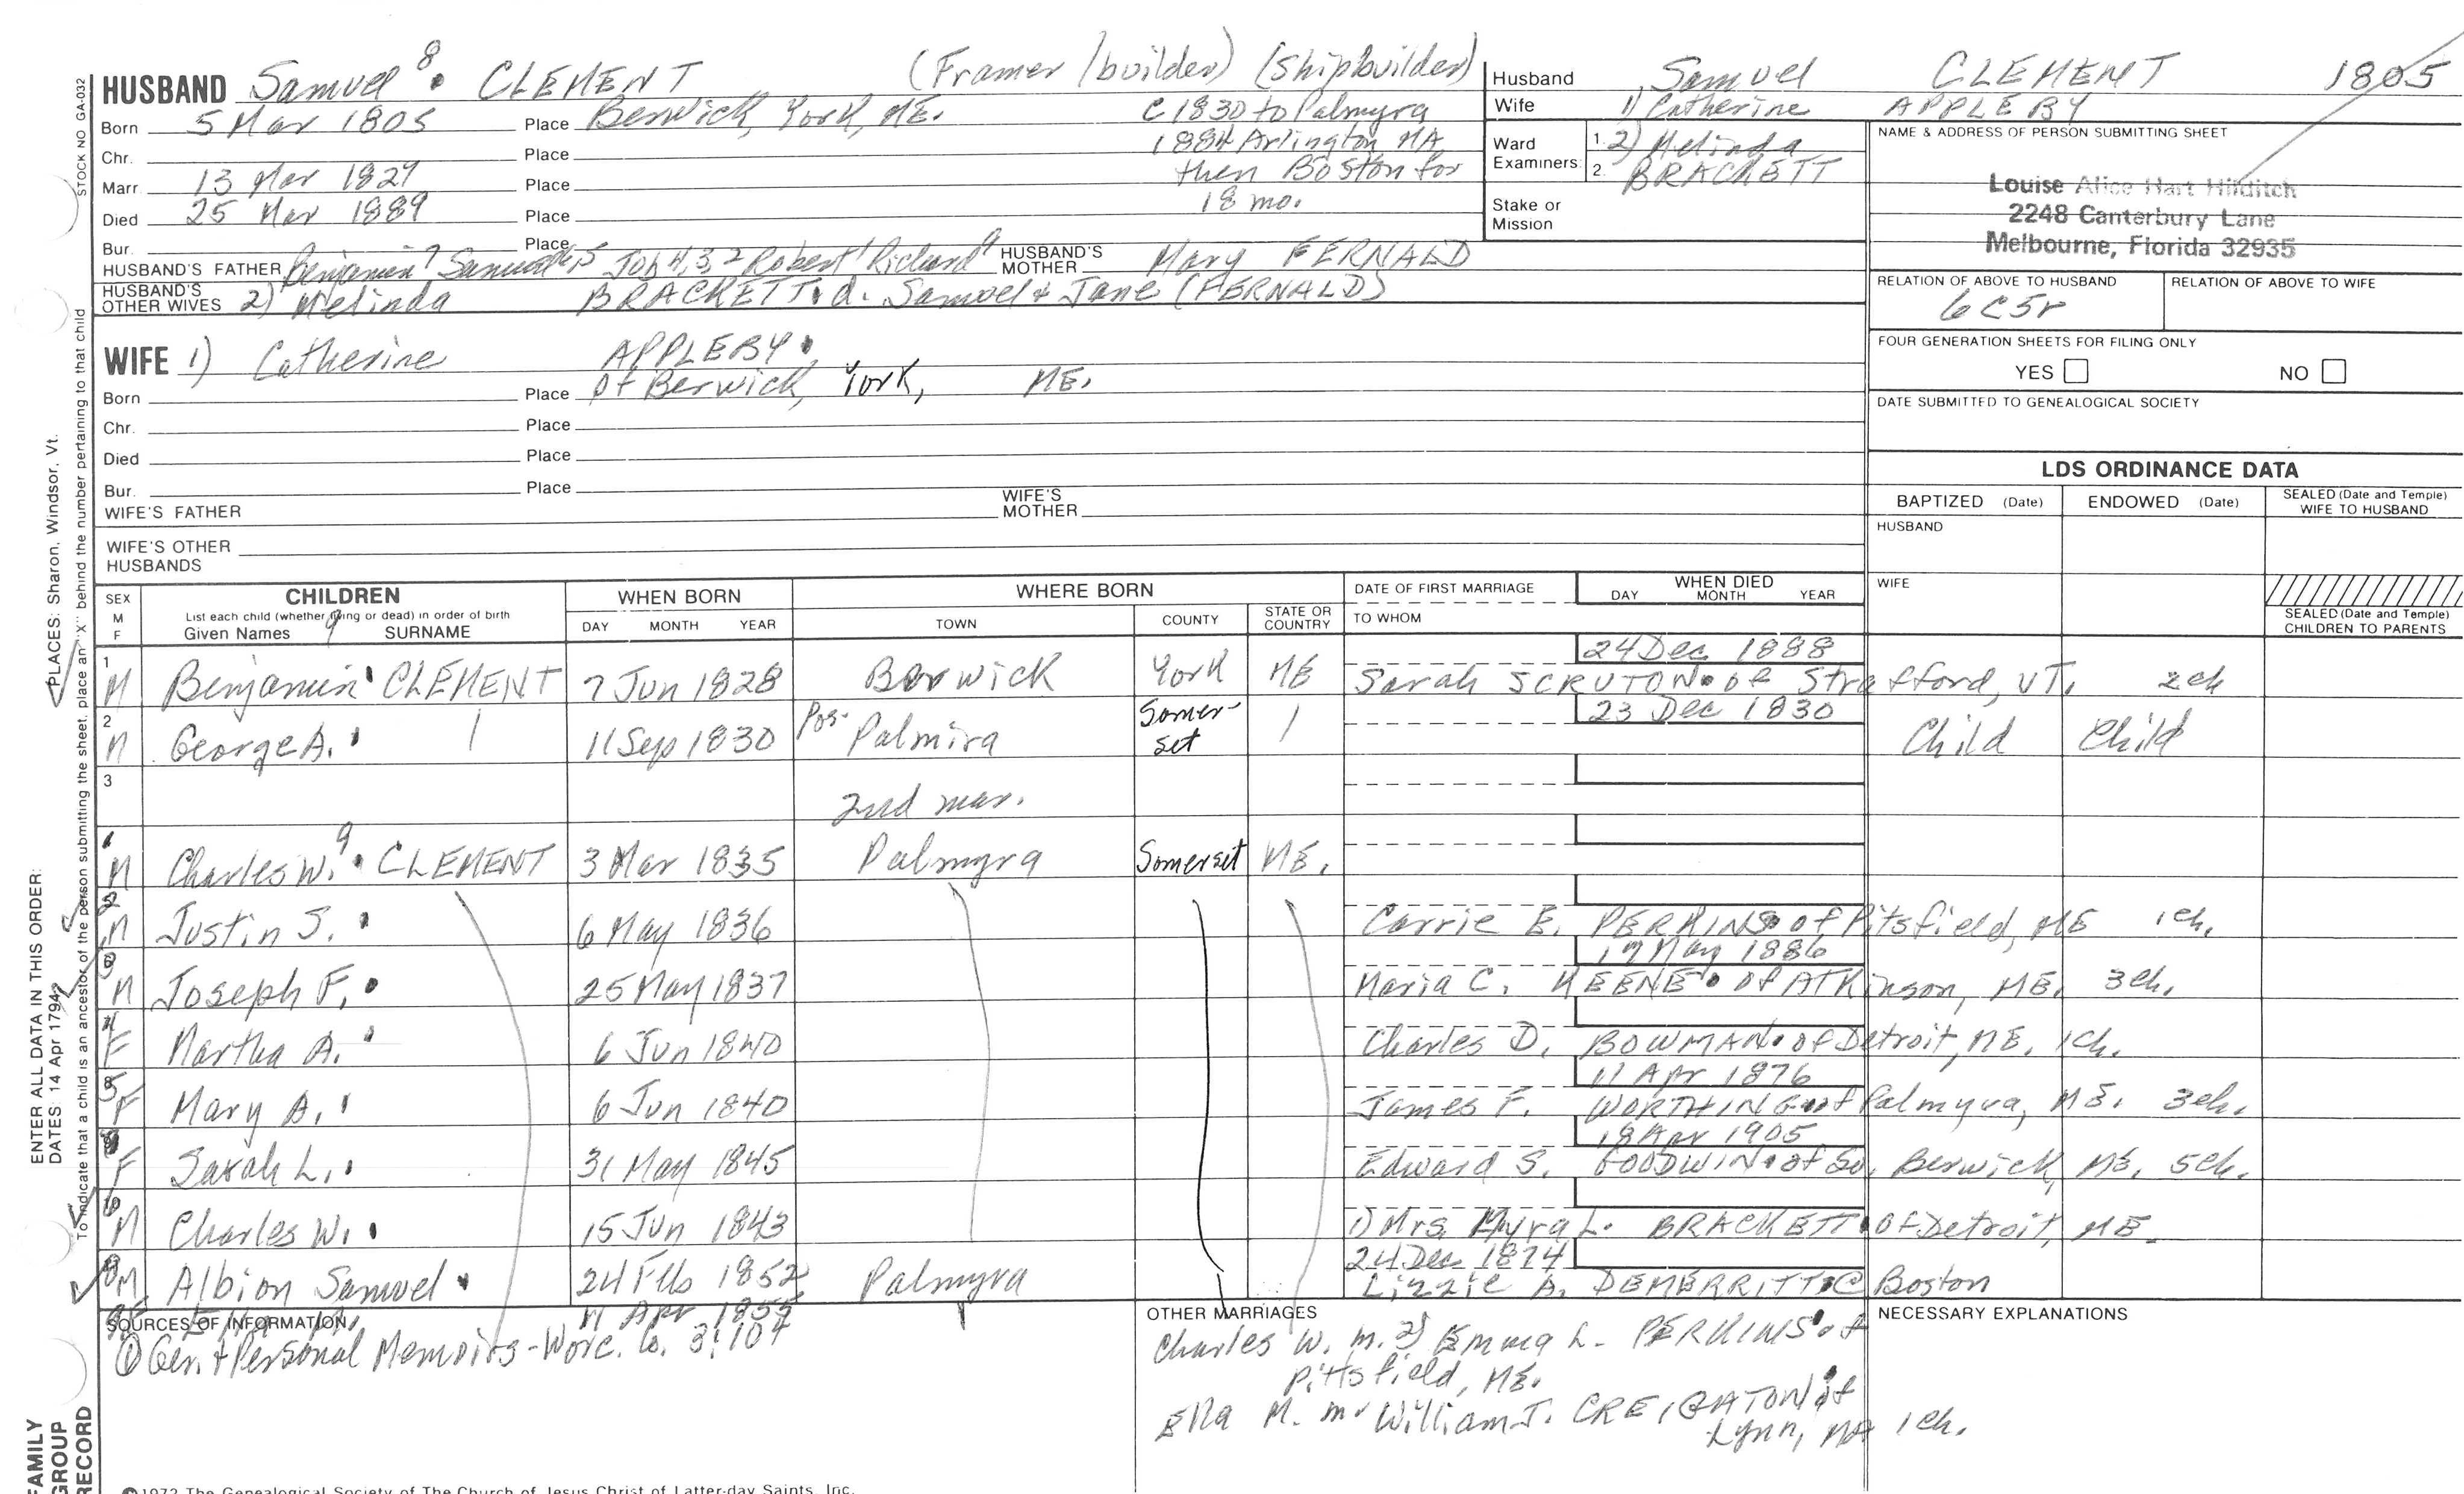 HUSBAND Samuel 8 CLEMENT (Framer/builder) (Shipbuilder)
Born 5 Mar 1805 Place Berwick, York, ME. C 1830 to Palmyra
Chr. Place 1884 Arlington MA
Marr. 13 Mar 1827 Place then Boston for
Died 25 Mar 1889 Place 18 mo.
Bur. Place
HUSBAND'S FATHER Benjamin 7 Samuel 6,5 Job 4,3,2 Robert 1 Richard HUSBAND'S MOTHER Mary FERNALD
HUSBAND'S OTHER WIVES 2) Melinda BRACKETT d. Samuel + Jane (FERNALD)
Husband Samuel CLEMENT 1805
Wife 1) Catherine APPLEBY
Ward Examiners: 1. 2) Melinda
2. BRACKETT
Stake or Mission
NAME & ADDRESS OF PERSON SUBMITTING SHEET
Louise Alice Hart Hilditch
2248 Canterbury Lane
Melbourne, Florida 32935
RELATION OF ABOVE TO HUSBAND RELATION OF ABOVE TO WIFE
6C5r
FOUR GENERATION SHEETS FOR FILING ONLY
YES NO
DATE SUBMITTED TO GENEALOGICAL SOCIETY
WIFE 1) Catherine APPLEBY
Born Place of Berwick, York, ME.
Chr. Place
Died Place
Bur. Place
WIFE'S FATHER WIFE'S MOTHER
WIFE'S OTHER HUSBANDS
LDS ORDINANCE DATA
BAPTIZED (Date) ENDOWED (Date) SEALED (Date and Temple) WIFE TO HUSBAND
HUSBAND
WIFE
SEALED (Date and Temple) CHILDREN TO PARENTS
SEX M F
CHILDREN
List each child (whether living or dead) in order of birth
Given Names 9 SURNAME
WHEN BORN
DAY MONTH YEAR
WHERE BORN
TOWN COUNTY STATE OR COUNTRY
DATE OF FIRST MARRIAGE
TO WHOM
WHEN DIED
DAY MONTH YEAR
24 Dec 1888
1 M Benjamin CLEMENT 7 Jun 1828 Berwick York ME Sarah SCRUTON of Strafford, VT. 2ch
23 Dec 1830
2 M George A. 11 Sep 1830 Pos. Palmira Somerset Child Child
3
2nd mar.
1 M Charles W. 9 CLEMENT 3 Mar 1835 Palmyra Somerset ME.
2 M Justin S. 6 May 1836 Carrie E. PERKINS of Pitsfield, ME 1ch.
17 May 1886
3 M Joseph F. 25 May 1837 Maria C. KEENE of ATKinson, ME. 3ch.
4 F Martha A. 6 Jun 1840 Charles D. BOWMAN of Detroit, ME. 1ch.
11 Apr 1876
5 F Mary A. 6 Jun 1840 James F. WORTHING of Palmyra, ME. 3ch.
18 Apr 1905
F Sarah L. 31 May 1845 Edward S. GOODWIN of So. Berwick, ME. 5ch.
6 M Charles W. 15 Jun 1843 1) Mrs. Myra L. BRACKETT of Detroit, ME.
24 Dec 1874
8 M Albion Samuel 24 Feb 1852 Palmyra Lizzie A. DEMERRITT C Boston
9 F 11 Apr 1855
SOURCES OF INFORMATION
① Gen. + Personal Memoirs - Worc. Co. 3:107
OTHER MARRIAGES
Charles W. m. 2) Emma L. PERKINS of
Pittsfield, ME.
Ella M. m. William J. CREIGHTON of
Lynn, MA 1ch.
NECESSARY EXPLANATIONS
STOCK NO GA-032
To indicate that a child is an ancestor of the person submitting the sheet, place an "X" behind the number pertaining to that child
ENTER ALL DATA IN THIS ORDER:
DATES: 14 Apr 1794
PLACES: Sharon, Windsor, Vt.
FAMILY GROUP RECORD
©1972 The Genealogical Society of The Church of Jesus Christ of Latter-day Saints, Inc.